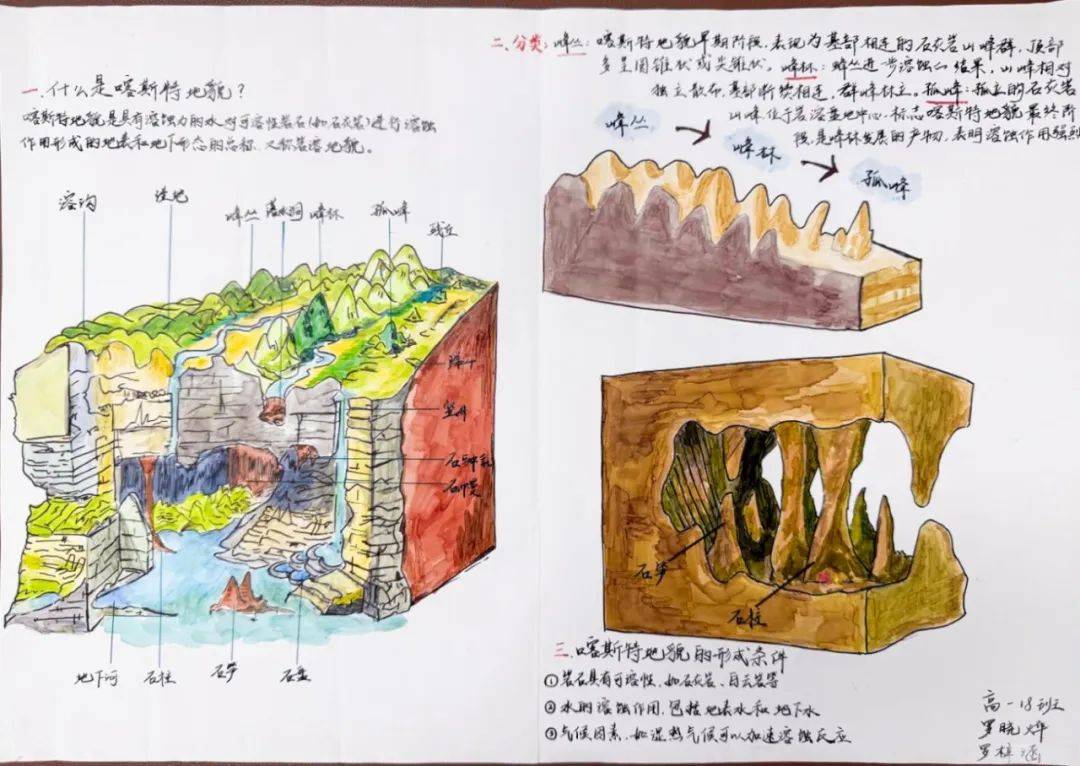 一.什么是喀斯特地貌?
喀斯特地貌是具有溶蚀力的水对可溶性岩石(如石灰岩)进行溶蚀
作用形成的地表和地下形态的总称,又称岩溶地貌。
溶沟
洼地
峰丛 落水洞 峰林
孤峰
残丘
竖井
石钟乳
石幔
地下河
石柱
石笋
石盘
二.分类:峰丛:喀斯特地貌早期阶段,表现为基部相连的石灰岩山峰群,顶部
多呈圆锥状或尖锥状。峰林:峰丛进一步溶蚀的结果,山峰相对
独立散布,基部断续相连,群峰林立。孤峰:孤立的石灰岩
山峰位于岩溶盆地中心,标志喀斯特地貌最终阶
段,是峰林发展的产物,表明溶蚀作用强烈
峰丛
峰林
孤峰
石笋
石柱
三.喀斯特地貌的形成条件
①岩石具有可溶性,如石灰岩、白云岩等
②水的溶蚀作用,包括地表水和地下水
③气候因素,如湿热气候可以加速溶蚀反应
高一18班
罗晓烨
罗梓涵